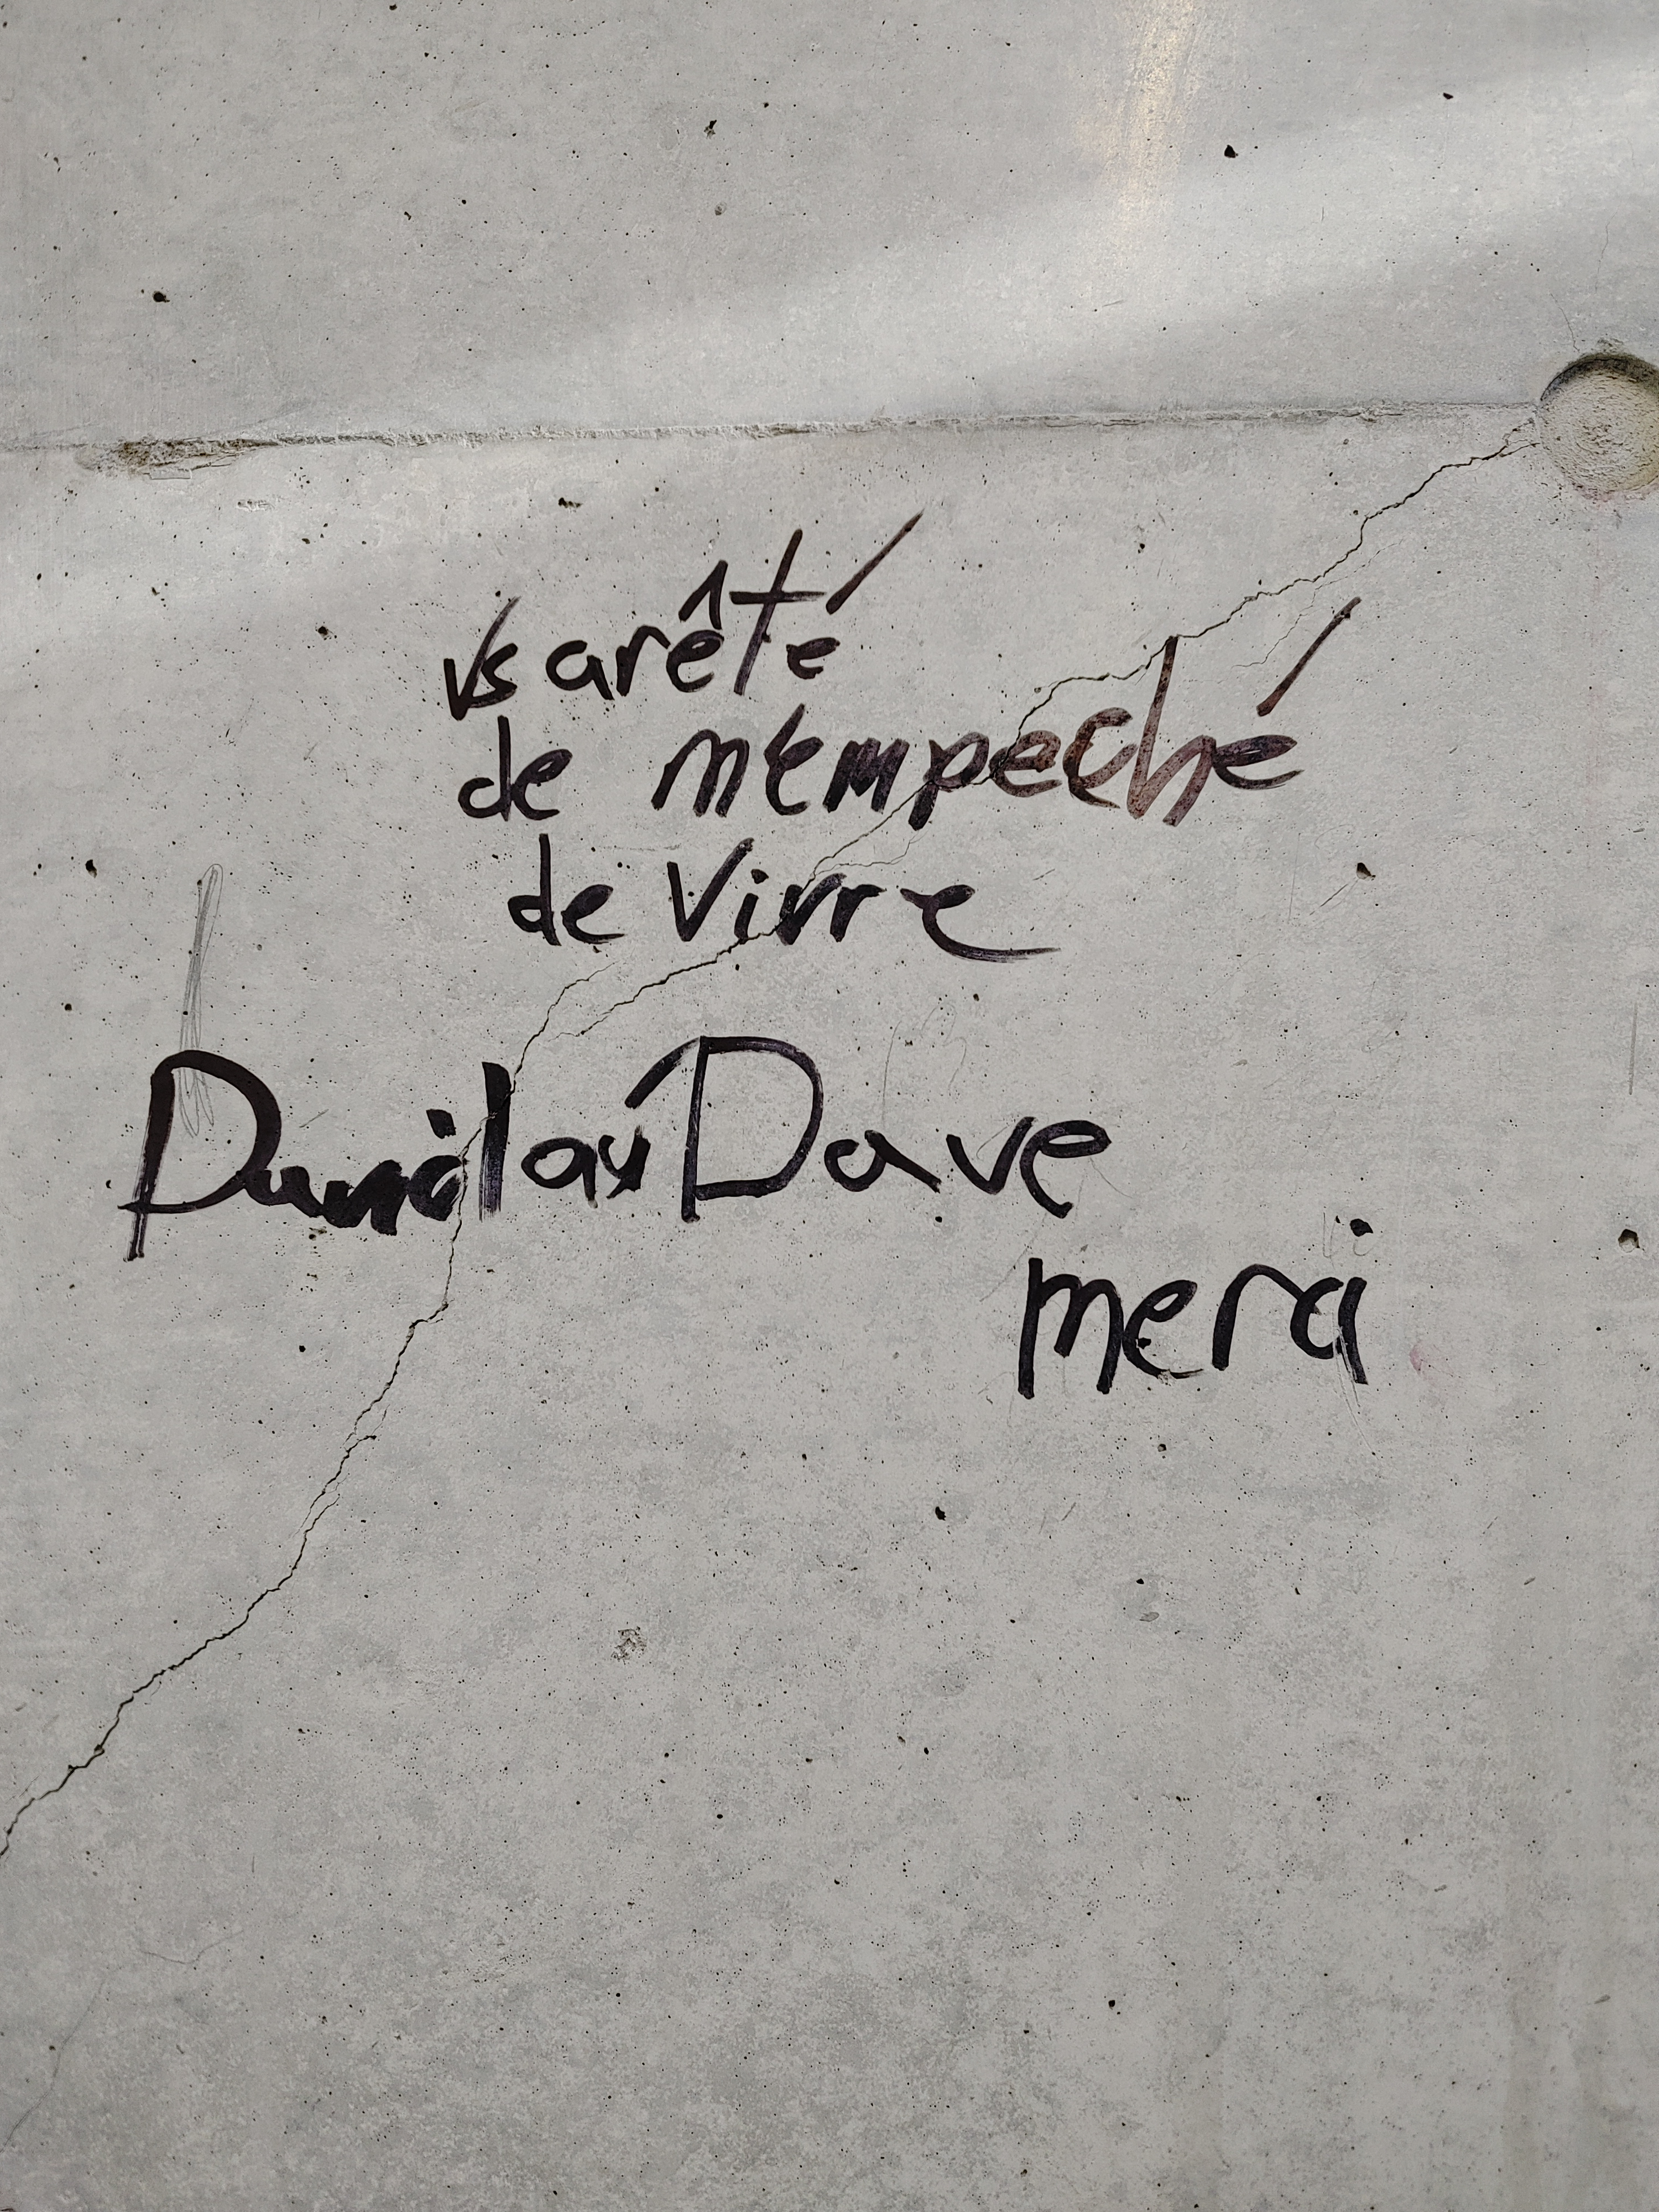 vs arêté
de m'empeché
de Vivre
Dave
merci